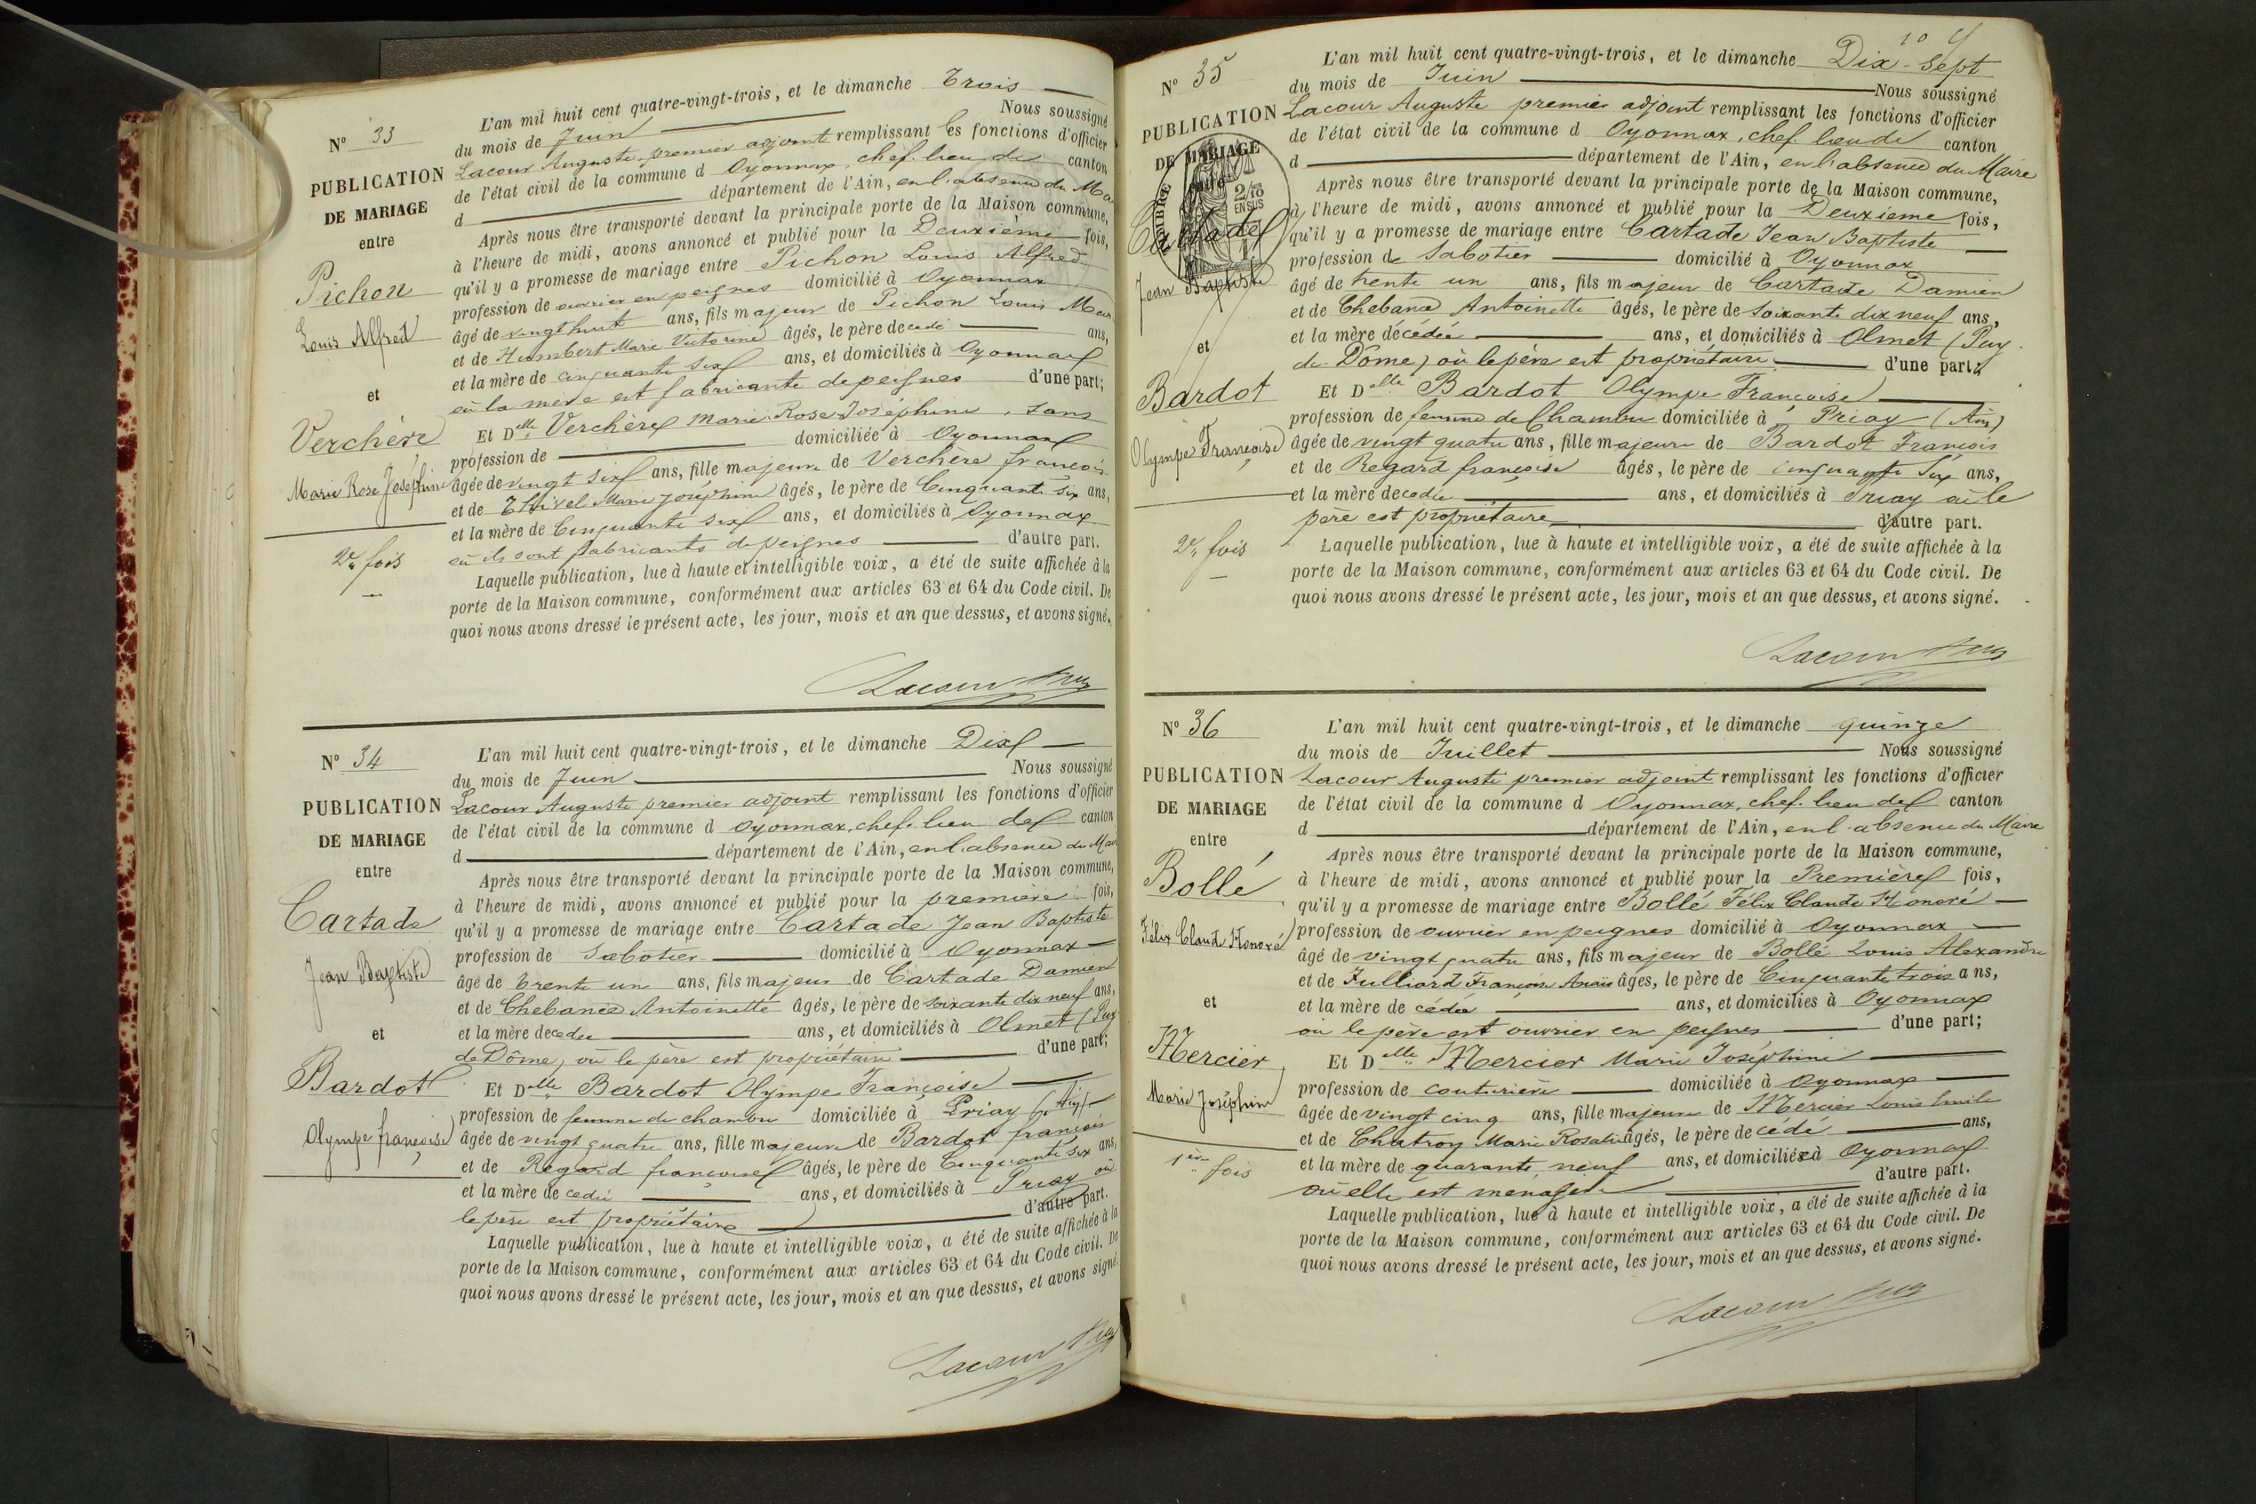 N° 33
PUBLICATION
DE MARIAGE
entre
Pichon
Louis Alfred
et
Verchère
Marie Rose Joséphine
2e fois
L'an mil huit cent quatre-vingt-trois, et le dimanche Trois
du mois de Juin Nous soussigné
Lacour Auguste premier adjoint remplissant les fonctions d'officier
de l'état civil de la commune d Oyonnax, chef-lieu de canton
d département de l'Ain, en l'absence du Ma
Après nous être transporté devant la principale porte de la Maison commune,
à l'heure de midi, avons annoncé et publié pour la Deuxième fois,
qu'il y a promesse de mariage entre Pichon Louis Alfred
profession de ouvrier en peignes domicilié à Oyonnax
âgé de vingt huit ans, fils majeur de Pichon Louis Mar
et de Humbert Marie Victorine âgés, le père decédé ans,
et la mère de cinquante six ans, et domiciliés à Oyonnax
où la mère est fabricante de peignes d'une part;
Et Delle Verchère Marie Rose Joséphine, sans
profession de domiciliée à Oyonnax
âgée de vingt six ans, fille majeure de Verchère françois
et de Thivel Marie Joséphine âgés, le père de Cinquante six ans,
et la mère de Cinquante six ans, et domiciliés à Oyonnax
où ils sont fabricants de peignes d'autre part.
Laquelle publication, lue à haute et intelligible voix, a été de suite affichée à la
porte de la Maison commune, conformément aux articles 63 et 64 du Code civil. De
quoi nous avons dressé le présent acte, les jour, mois et an que dessus, et avons signé.
Lacour Aug
N° 34
PUBLICATION
DE MARIAGE
entre
Cartade
Jean Baptiste
et
Bardot
Olympe françoise
L'an mil huit cent quatre-vingt-trois, et le dimanche Dix
du mois de Juin Nous soussigné
Lacour Auguste premier adjoint remplissant les fonctions d'officier
de l'état civil de la commune d Oyonnax, chef-lieu de canton
d département de l'Ain, en l'absence du Mai
Après nous être transporté devant la principale porte de la Maison commune,
à l'heure de midi, avons annoncé et publié pour la première fois,
qu'il y a promesse de mariage entre Cartade Jean Baptiste
profession de Sabotier domicilié à Oyonnax
âgé de trente un ans, fils majeur de Cartade Damien
et de Chebance Antoinette âgés, le père de soixante dix neuf ans,
et la mère decedée ans, et domiciliés à Olmet (Puy
de Dôme) où le père est propriétaire d'une part;
Et Delle Bardot Olympe Françoise
profession de femme de chambre domiciliée à Priay (Ain)
âgée de vingt quatre ans, fille majeure de Bardot françois
et de Regard françoise âgés, le père de Cinquante six ans,
et la mère de cedée ans, et domiciliés à Priay où
le père est propriétaire d'autre part.
Laquelle publication, lue à haute et intelligible voix, a été de suite affichée à la
porte de la Maison commune, conformément aux articles 63 et 64 du Code civil. De
quoi nous avons dressé le présent acte, les jour, mois et an que dessus, et avons signé
Lacour Aug
10
N° 35
PUBLICATION
DE MARIAGE
entre
TIMBRE
2/10 EN SUS
Cartade
Jean Baptiste
et
Bardot
Olympe Françoise
2e fois
L'an mil huit cent quatre-vingt-trois, et le dimanche Dix-Sept
du mois de Juin Nous soussigné
Lacour Auguste premier adjoint remplissant les fonctions d'officier
de l'état civil de la commune d Oyonnax, chef-lieu de canton
d département de l'Ain, en l'absence du Maire
Après nous être transporté devant la principale porte de la Maison commune,
à l'heure de midi, avons annoncé et publié pour la Deuxième fois,
qu'il y a promesse de mariage entre Cartade Jean Baptiste
profession de Sabotier domicilié à Oyonnax
âgé de trente un ans, fils majeur de Cartade Damien
et de Chebance Antoinette âgés, le père de soixante dix neuf ans,
et la mère décédée ans, et domiciliés à Olmet (Puy
de Dôme) où le père est propriétaire d'une part;
Et Delle Bardot Olympe Françoise
profession de femme de Chambre domiciliée à Priay (Ain)
âgée de vingt quatre ans, fille majeure de Bardot François
et de Regard françoise âgés, le père de cinquante six ans,
et la mère decedée ans, et domiciliés à Priay où le
père est propriétaire d'autre part.
Laquelle publication, lue à haute et intelligible voix, a été de suite affichée à la
porte de la Maison commune, conformément aux articles 63 et 64 du Code civil. De
quoi nous avons dressé le présent acte, les jour, mois et an que dessus, et avons signé.
Lacour Aug
N° 36
PUBLICATION
DE MARIAGE
entre
Bollé
Félix Claude Honoré
et
Mercier
Marie Joséphine
1ère fois
L'an mil huit cent quatre-vingt-trois, et le dimanche quinze
du mois de Juillet Nous soussigné
Lacour Auguste premier adjoint remplissant les fonctions d'officier
de l'état civil de la commune d Oyonnax, chef-lieu de canton
d département de l'Ain, en l'absence du Maire
Après nous être transporté devant la principale porte de la Maison commune,
à l'heure de midi, avons annoncé et publié pour la Première fois,
qu'il y a promesse de mariage entre Bollé Félix Claude Honoré
profession de ouvrier en peignes domicilié à Oyonnax
âgé de vingt quatre ans, fils majeur de Bollé Louis Alexandre
et de Julliard Françoise Anaïs âgés, le père de Cinquante trois ans,
et la mère de cédée ans, et domiciliés à Oyonnax
où le père est ouvrier en peignes d'une part;
Et Delle Mercier Marie Joséphine
profession de couturière domiciliée à Oyonnax
âgée de vingt cinq ans, fille majeure de Mercier Louis Emile
et de Chatroy Marie Rosalie âgés, le père de cédé ans,
et la mère de quarante neuf ans, et domiciliée à Oyonnax
où elle est ménagère d'autre part.
Laquelle publication, lue à haute et intelligible voix, a été de suite affichée à la
porte de la Maison commune, conformément aux articles 63 et 64 du Code civil. De
quoi nous avons dressé le présent acte, les jour, mois et an que dessus, et avons signé.
Lacour Aug